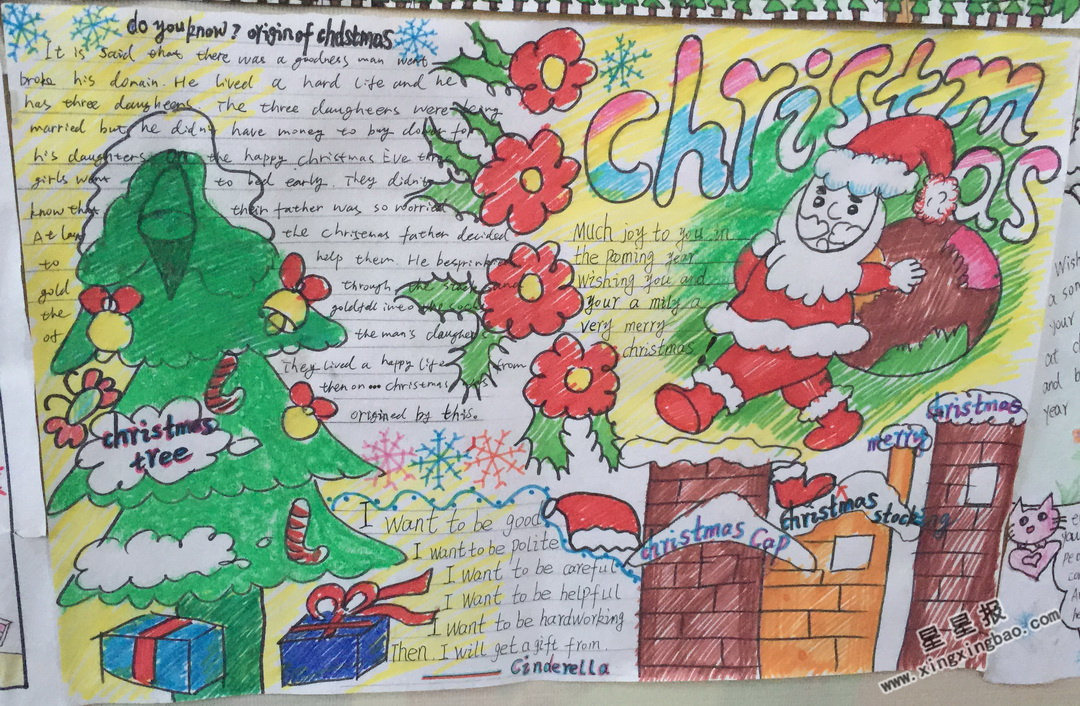 do you know? origin of chdstmas
It is said that there was a goodness man went
broke his domain. He lived a hard life and he
has three daugheers. The three daugheers were being
married but he didn't have money to buy for
his daughters. On the happy christmas Eve
girls went to bed early. They didn't
know that their father was so worried
At the christmas father decided
to help them. He
gold through the
the into the
of the man's daugher
They lived a happy life from
then on... christmas
origined by this.
christmas
tree
I want to be good
I want to be polite
I want to be careful
I want to be helpful
I want to be hardworking
Then I will get a gift from
Cinderella
christmas
Much joy to you in
the coming year
wishing you and
your a mily a
very merry
christmas
christmas Cap
christmas
stocking
merry
christmas
Wish
a
your
at
and
year
星星报
www.xingxingbao.com